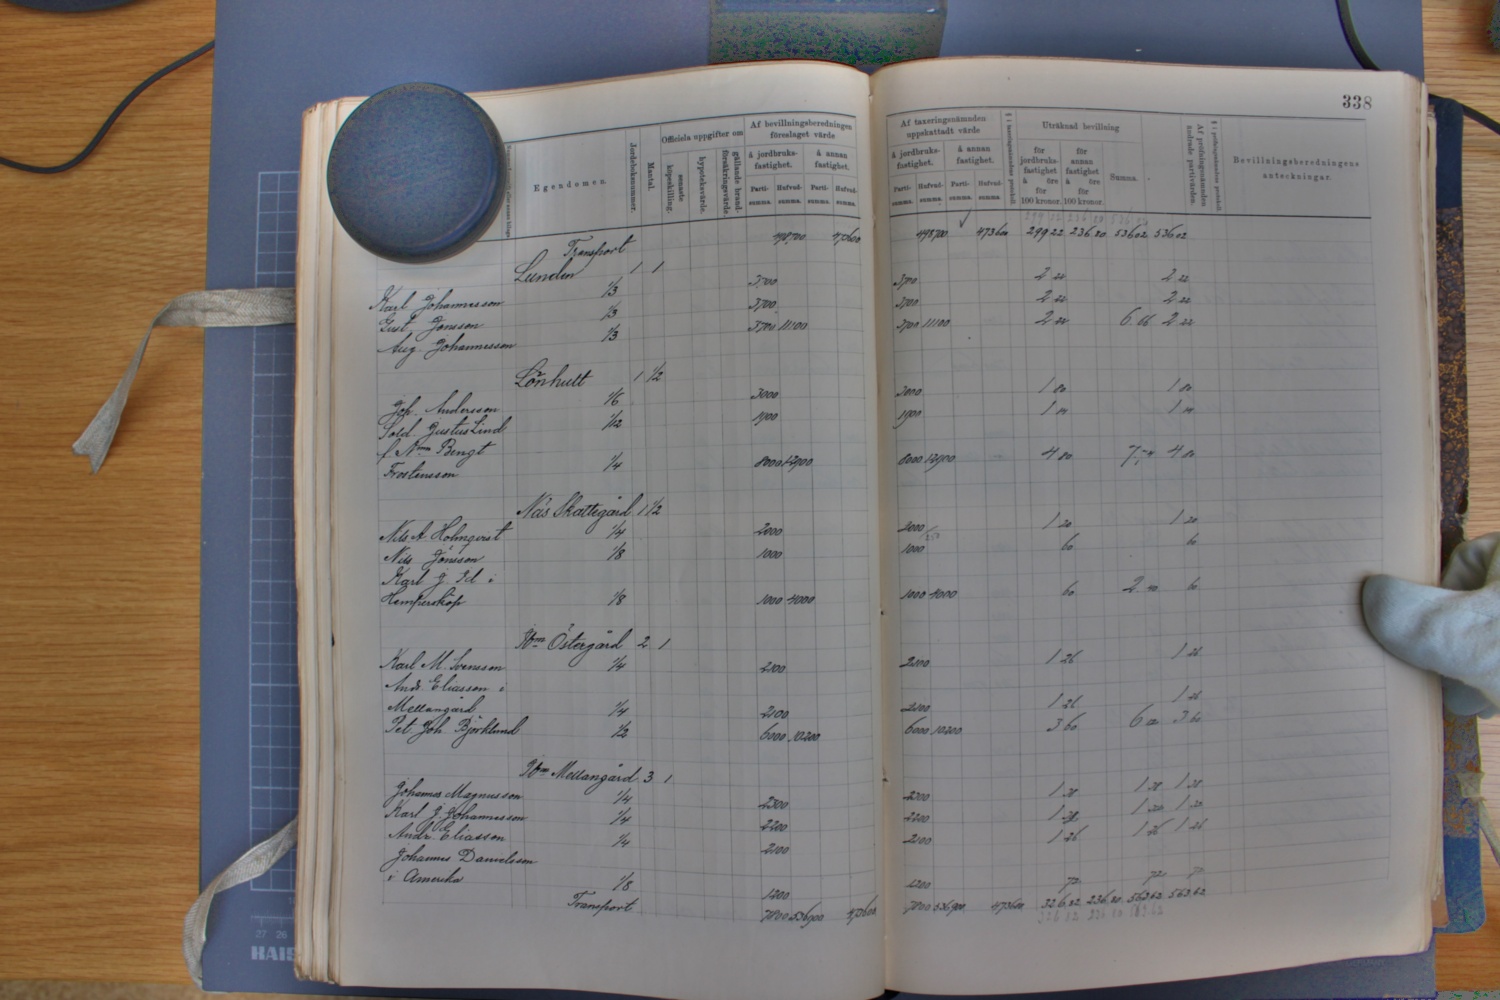 338
Egendomen.
Jordeboksnummer.
Mantal.
Officiela uppgifter om
senaste köpeskilling.
hypoteksvärde.
gällande brandförsäkringsvärde.
Af bevillningsberedningen föreslaget värde
å jordbruksfastighet.
å annan fastighet.
Parti-summa.
Hufvud-summa.
Parti-summa.
Hufvud-summa.
Af taxeringsnämnden uppskattadt värde
å jordbruksfastighet.
å annan fastighet.
Parti-summa.
Hufvud-summa.
Parti-summa.
Hufvud-summa.
Uträknad bevillning
för jordbruksfastighet à öre för 100 kronor.
för annan fastighet à öre för 100 kronor.
Summa.
Af pröfningsnämnden ändrade partivärden.
Bevillningsberedningens anteckningar.
Transport 473600 473600 299 22 236 80 536 02 536 02
Lunden 1 1
Karl Johannesson 1/3 3700 3700 2 22 2 22
Gust Jonsson 1/3 3700 3700 2 22 2 22
Aug Johannesson 1/3 3700 11100 3700 11100 2 22 6 66 2 22
Lönhult 1 1/2
Joh. Andersson 1/6 3000 3000 1 80 1 80
Sold. Gustus Lind 1/12 1900 1900
f. Nmn Bengt
Frostensson 1/4 8000 12900 8000 12900 4 80 4 80
Näs Skattegård 1 1/2
Nils A. Holmqvist 1/4 2000 2000 1 20 1 20
Nils Jonsson 1/8 1000 1000 60 60
Karl J.
1/8 1000 4000 1000 4000 60 2 40 60
Östergård 2 1
Karl M. Svensson 1/4 2100 2100 1 26 1 26
Andr. Eliasson i
Mellangård 1/4 2100 2100 1 26 1 26
Pet Joh. Björklund 1/2 6000 10200 6000 10200 3 60 3 60
Mellangård 3 1
Johannes Magnusson 1/4 2300 2300 1 38 1 38 1 38
Karl J. Johannesson 1/4 2200 2200
Andr Eliasson 1/4 2100 2100 1 26 1 26 1 26
Johannes Danielsson
i Amerika 1/8 1200 1200 72 72 72
Transport 7800 536900 473600 7800 536900 473600 326 82 236 80 563 62 563 62
27 26